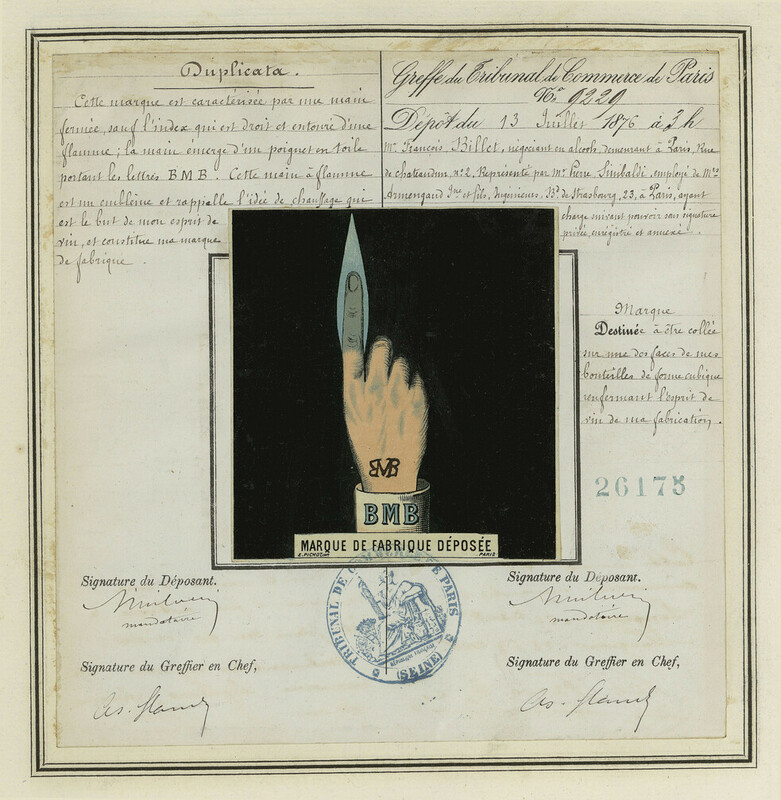 Duplicata.
Cette marque est caractérisée par une main
fermée, sauf l'index qui est droit et entouré d'une
flamme ; la main émerge d'un poignet en toile
portant les lettres BMB. Cette main à flamme
est un emblème et rappelle l'idée de chauffage qui
est le but de mon esprit de
vin, et constitue ma marque
de fabrique.
Greffe du Tribunal de Commerce de Paris
No. 9229
Dépôt du 13 Juillet 1876 à 3 h
Mr. François Billet, négociant en alcools, demeurant à Paris, Rue
de chateaudun, no. 2, Représenté par Mr. Pierre Sinibaldi, employé de Mrs
Armengaud Jne et fils, Ingénieurs, Bd. de Strasbourg, 23, à Paris, ayant
charge suivant pouvoir sous signature
privée, enregistré et annexé.
Marque
Destinée à être collée
sur une des faces de mes
bouteilles de forme cubique
renfermant l'esprit de
vin de ma fabrication.
26175
BMB
BMB
MARQUE DE FABRIQUE DÉPOSÉE
E. PICHOT PARIS
Signature du Déposant.
mandataire
Signature du Greffier en Chef,
TRIBUNAL DE COMMERCE DE PARIS
RÉPUBLIQUE FRANÇAISE
(SEINE)
Signature du Déposant.
mandataire
Signature du Greffier en Chef,